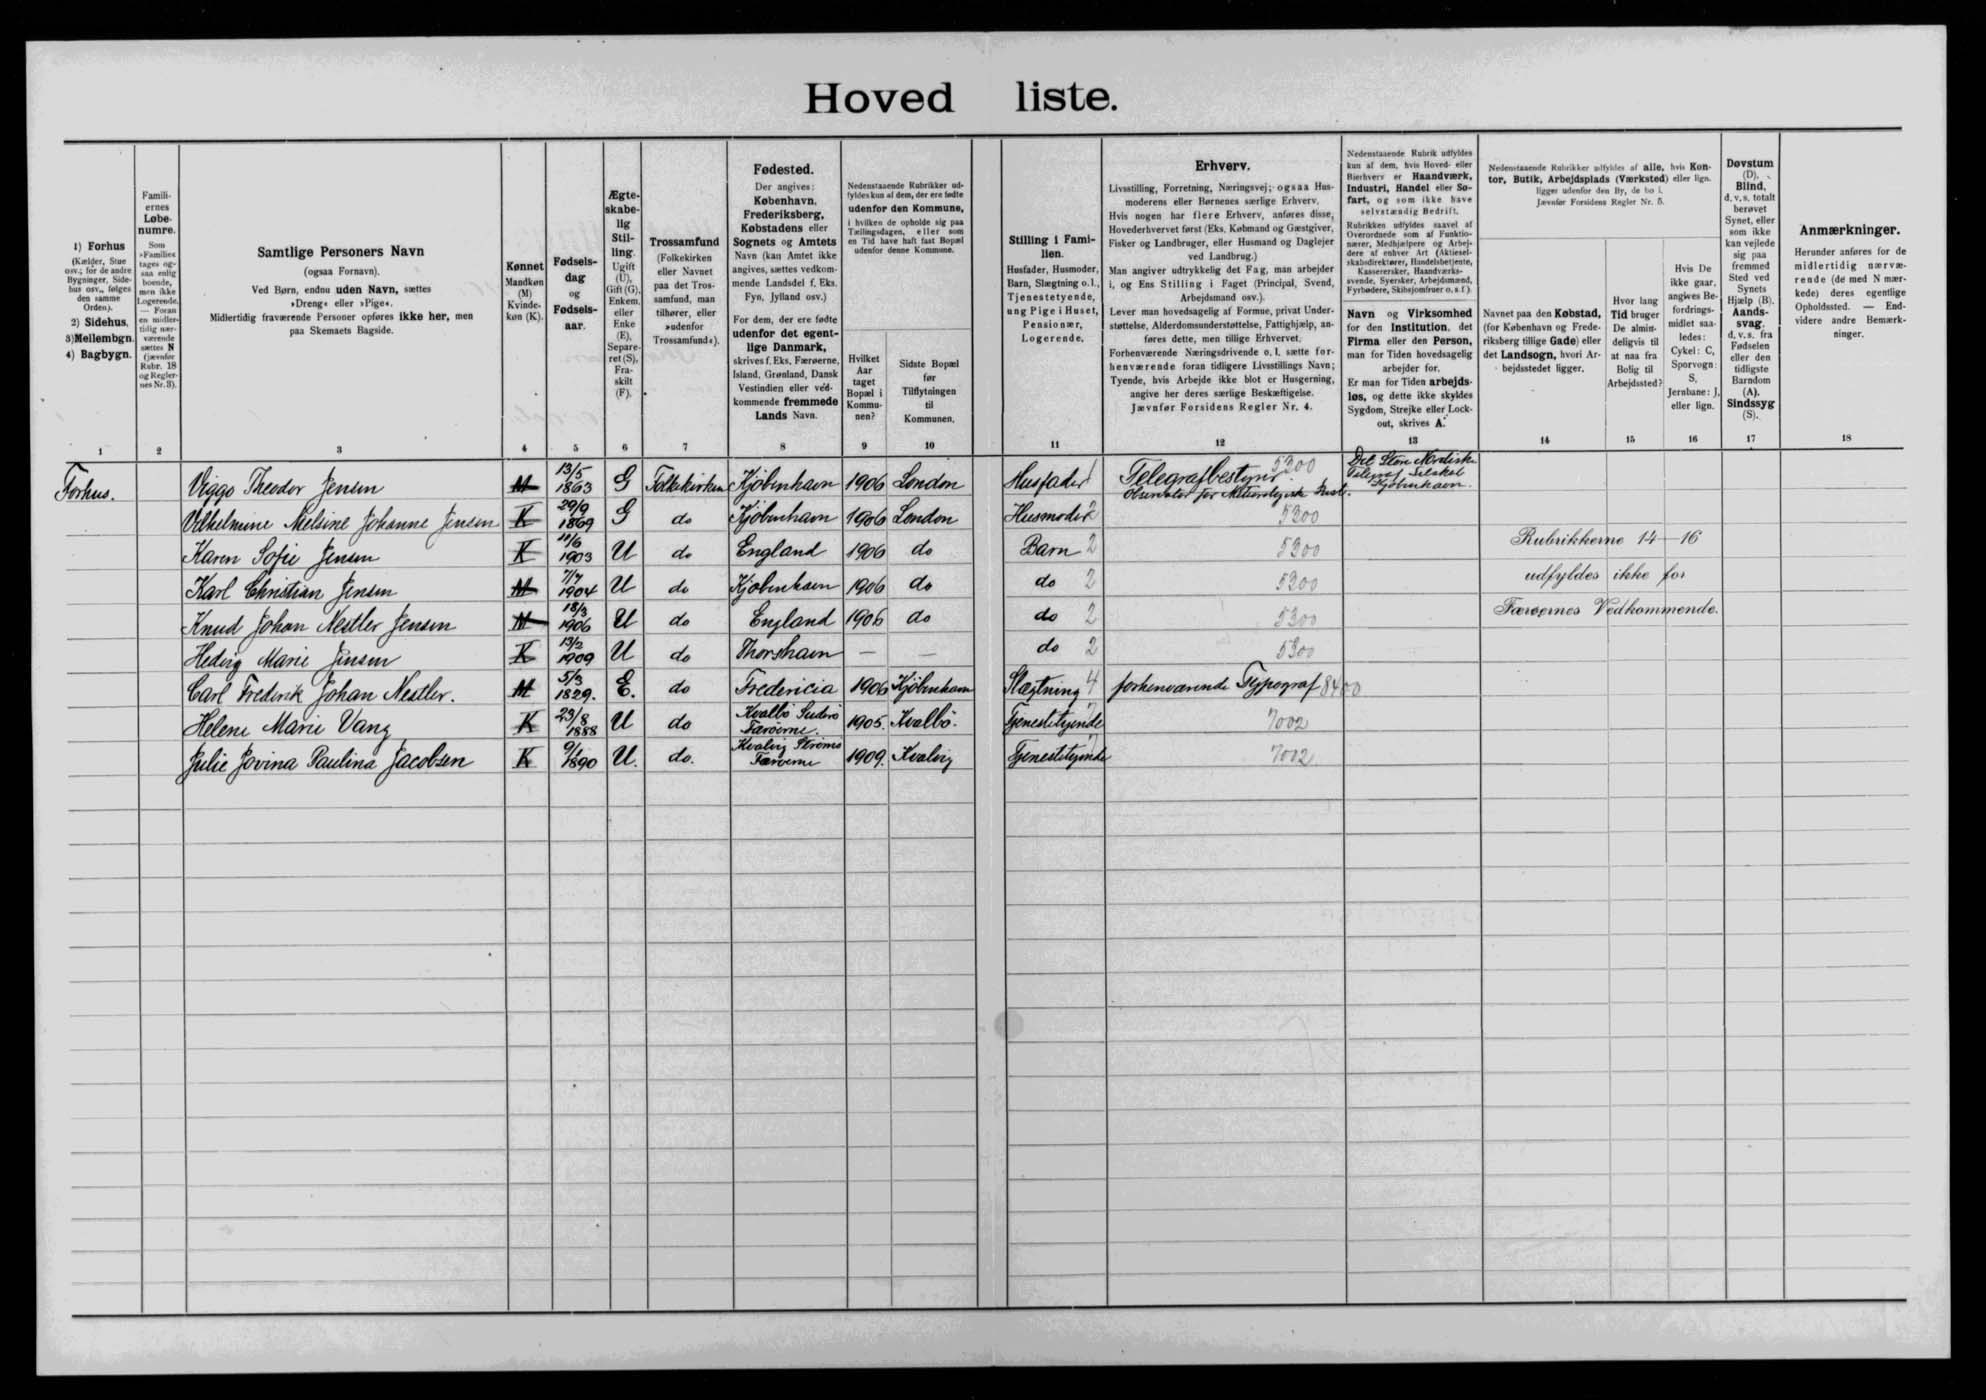 Hoved liste.
1) Forhus
(Kælder, Stue
osv.; for de andre
Bygninger, Side-
hus osv., følges
den samme
Orden).
2) Sidehus,
3) Mellembgn.
4) Bagbygn.
Famili-
ernes
Løbe-
numre.
Som
»Familie«
tages og-
saa enlig
boende,
men ikke
Logerende.
— Foran
en midler-
tidig nær-
værende
sættes N
(jævnfør
Rubr. 18
og Regler-
nes Nr. 3).
Samtlige Personers Navn
(ogsaa Fornavn).
Ved Børn, endnu uden Navn, sættes
»Dreng« eller »Pige«.
Midlertidig fraværende Personer opføres ikke her, men
paa Skemaets Bagside.
Kønnet
Mandkøn
(M)
Kvinde-
køn (K).
Fødsels-
dag
og
Fødsels-
aar.
Ægte-
skabe-
lig
Stil-
ling.
Ugift
(U),
Gift (G),
Enkem.
eller
Enke
(E),
Separe-
ret (S),
Fra-
skilt
(F).
Trossamfund
(Folkekirken
eller Navnet
paa det Tros-
samfund, man
tilhører, eller
»udenfor
Trossamfund«).
Fødested.
Der angives:
København,
Frederiksberg,
Købstadens eller
Sognets og Amtets
Navn (kan Amtet ikke
angives, sættes vedkom-
mende Landsdel f. Eks.
Fyn, Jylland osv.)
For dem, der ere fødte
udenfor det egent-
lige Danmark,
skrives f. Eks. Færøerne,
Island, Grønland, Dansk
Vestindien eller ved-
kommende fremmede
Lands Navn.
Nedenstaaende Rubrikker ud-
fyldes kun af dem, der ere fødte
udenfor den Kommune,
i hvilken de opholde sig paa
Tællingsdagen, eller som
en Tid have haft fast Bopæl
udenfor denne Kommune.
Hvilket
Aar
taget
Bopæl i
Kommu-
nen?
Sidste Bopæl
før
Tilflytningen
til
Kommunen.
Stilling i Fami-
lien.
Husfader, Husmoder,
Barn, Slægtning o. l.,
Tjenestetyende,
ung Pige i Huset,
Pensionær,
Logerende.
Erhverv.
Livsstilling, Forretning, Næringsvej; ogsaa Hus-
moderens eller Børnenes særlige Erhverv.
Hvis nogen har flere Erhverv, anføres disse,
Hovederhvervet først (Eks. Købmand og Gæstgiver,
Fisker og Landbruger, eller Husmand og Daglejer
ved Landbrug.)
Man angiver udtrykkelig det Fag, man arbejder
i, og Ens Stilling i Faget (Principal, Svend,
Arbejdsmand osv.).
Lever man hovedsagelig af Formue, privat Under-
støttelse, Alderdomsunderstøttelse, Fattighjælp, an-
føres dette, men tillige Erhvervet.
Forhenværende Næringsdrivende o. l. sætte for-
henværende foran tidligere Livsstillings Navn;
Tyende, hvis Arbejde ikke blot er Husgerning,
angive her deres særlige Beskæftigelse.
Jævnfør Forsidens Regler Nr. 4.
Nedenstaaende Rubrik udfyldes
kun af dem, hvis Hoved- eller
Bierhverv er Haandværk,
Industri, Handel eller Sø-
fart, og som ikke have
selvstændig Bedrift.
Rubrikken udfyldes saavel af
Overordnede som af Funktio-
nærer, Medhjælpere og Arbej-
dere af enhver Art (Aktiesel-
skabsdirektører, Handelsbetjente,
Kasserersker, Haandværks-
svende, Syersker, Arbejdsmænd,
Fyrbødere, Skibsjomfruer o. s. f.).
Navn og Virksomhed
for den Institution, det
Firma eller den Person,
man for Tiden hovedsagelig
arbejder for.
Er man for Tiden arbejds-
løs, og dette ikke skyldes
Sygdom, Strejke eller Lock-
out, skrives A.
Nedenstaaende Rubrikker udfyldes af alle, hvis Kon-
tor, Butik, Arbejdsplads (Værksted) eller lign.
ligger udenfor den By, de bo i.
Jævnfør Forsidens Regler Nr. 5.
Navnet paa den Købstad,
(for København og Frede-
riksberg tillige Gade) eller
det Landsogn, hvori Ar-
bejdsstedet ligger.
Hvor lang
Tid bruger
De almin-
deligvis til
at naa fra
Bolig til
Arbejdssted?
Hvis De
ikke gaar,
angives Be-
fordrings-
midlet saa-
ledes:
Cykel: C,
Sporvogn:
S,
Jernbane: J,
eller lign.
Døvstum
(D).
Blind,
d. v. s. totalt
berøvet
Synet, eller
som ikke
kan vejlede
sig paa
fremmed
Sted ved
Synets
Hjælp (B).
Aands-
svag,
d. v. s. fra
Fødselen
eller den
tidligste
Barndom
(A).
Sindssyg
(S).
Anmærkninger.
Herunder anføres for de
midlertidig nærvæ-
rende (de med N mær-
kede) deres egentlige
Opholdssted. — End-
videre andre Bemærk-
ninger.
1 2 3 4 5 6 7 8 9 10 11 12 13 14 15 16 17 18
Forhus. Viggo Theodor Jensen M 13/5 1863 G Folkekirken Kjöbenhavn 1906 London Husfader 1 Telegrafbestyrer. 5300 Det Store Nordiske
Observator for Meteorologisk Inst. Telegraf Selskab
Kjøbenhavn.
Vilhelmine Nielsine Johanne Jensen K 29/9 1869 G do Kjöbenhavn 1906 London Husmoder 2 5300
Karen Sofie Jensen K 11/6 1903 U do England 1906 do Barn 2 5300 Rubrikkerne 14—16
Karl Christian Jensen M 7/7 1904 U do Kjöbenhavn 1906 do do 2 5300 udfyldes ikke for
Knud Johan Nestler Jensen M 18/3 1906 U do England 1906 do do 2 5300 Færøernes Vedkommende.
Hedvig Marie Jensen K 13/2 1909 U do Thorshavn — — do 2 5300
Carl Frederik Johan Nestler. M 5/3 1829. E. do Fredericia 1906 Kjöbenhavn Slægtning 4 forhenværende Typograf 8400
Helene Marie Vang K 23/8 1888 U do Kvalbö Suderö Færöerne. 1905. Kvalbö. Tjenestetyende 7 7002
Julie Jovina Paulina Jacobsen K 9/1 1890 U. do. Kvalvig Strömö Færöerne 1909. Kvalvig Tjenestetyende 7 7002